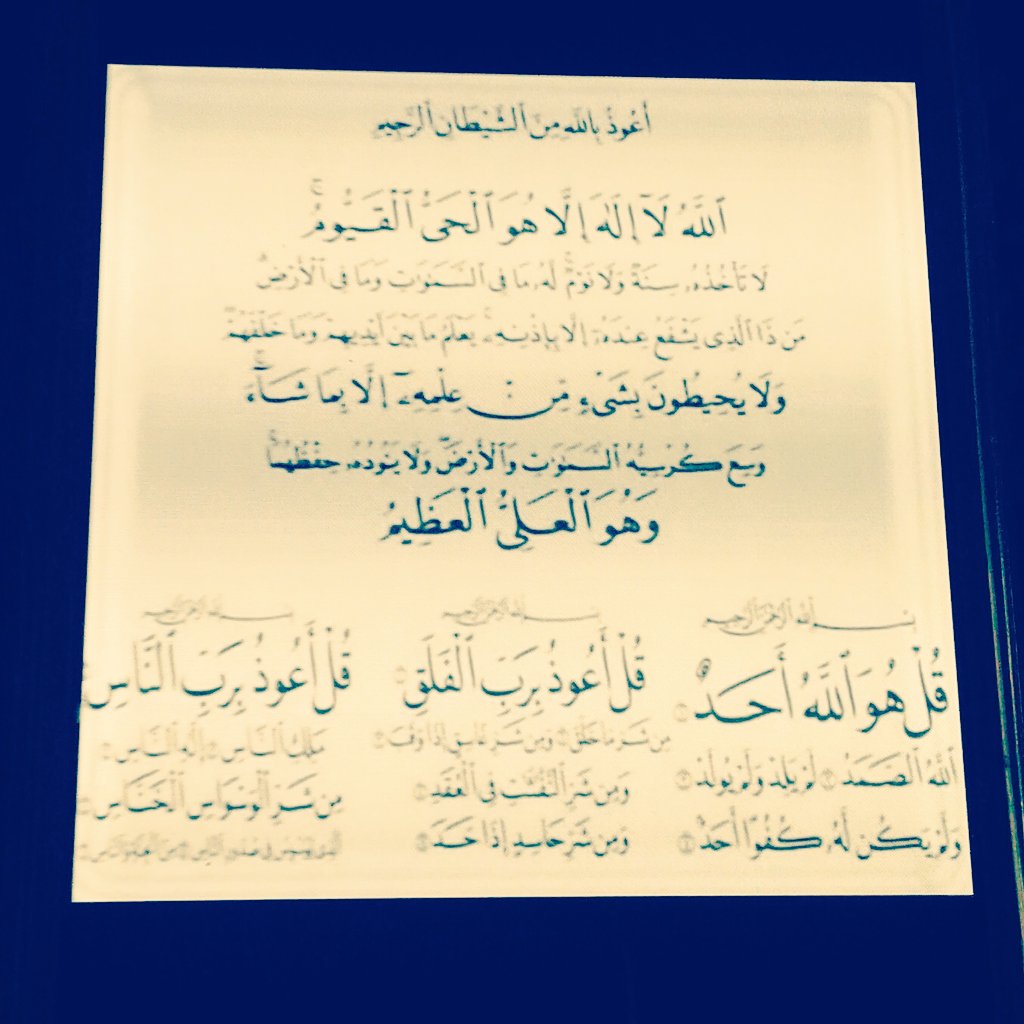 أَعُوذُ بِاللَّهِ مِنَ ٱلشَّيْطَانِ ٱلرَّجِيمِ
ٱللَّهُ لَآ إِلَٰهَ إِلَّا هُوَ ٱلْحَىُّ ٱلْقَيُّومُ ۚ
لَا تَأْخُذُهُۥ سِنَةٌ وَلَا نَوْمٌ ۚ لَّهُۥ مَا فِى ٱلسَّمَٰوَٰتِ وَمَا فِى ٱلْأَرْضِ ۗ
مَن ذَا ٱلَّذِى يَشْفَعُ عِندَهُۥٓ إِلَّا بِإِذْنِهِۦ ۚ يَعْلَمُ مَا بَيْنَ أَيْدِيهِمْ وَمَا خَلْفَهُمْ ۖ
وَلَا يُحِيطُونَ بِشَىْءٍ مِّنْ عِلْمِهِۦٓ إِلَّا بِمَا شَآءَ ۚ
وَسِعَ كُرْسِيُّهُ ٱلسَّمَٰوَٰتِ وَٱلْأَرْضَ ۖ وَلَا يَـُٔودُهُۥ حِفْظُهُمَا ۚ
وَهُوَ ٱلْعَلِىُّ ٱلْعَظِيمُ
بِسْمِ ٱللَّهِ ٱلرَّحْمَٰنِ ٱلرَّحِيمِ
قُلْ هُوَ ٱللَّهُ أَحَدٌ ۝
ٱللَّهُ ٱلصَّمَدُ ۝ لَمْ يَلِدْ وَلَمْ يُولَدْ ۝
وَلَمْ يَكُن لَّهُۥ كُفُوًا أَحَدٌۢ ۝
بِسْمِ ٱللَّهِ ٱلرَّحْمَٰنِ ٱلرَّحِيمِ
قُلْ أَعُوذُ بِرَبِّ ٱلْفَلَقِ ۝
مِن شَرِّ مَا خَلَقَ ۝ وَمِن شَرِّ غَاسِقٍ إِذَا وَقَبَ ۝
وَمِن شَرِّ ٱلنَّفَّٰثَٰتِ فِى ٱلْعُقَدِ ۝
وَمِن شَرِّ حَاسِدٍ إِذَا حَسَدَ ۝
بِسْمِ ٱللَّهِ ٱلرَّحْمَٰنِ ٱلرَّحِيمِ
قُلْ أَعُوذُ بِرَبِّ ٱلنَّاسِ ۝
مَلِكِ ٱلنَّاسِ ۝ إِلَٰهِ ٱلنَّاسِ ۝
مِن شَرِّ ٱلْوَسْوَاسِ ٱلْخَنَّاسِ ۝
ٱلَّذِى يُوَسْوِسُ فِى صُدُورِ ٱلنَّاسِ ۝ مِنَ ٱلْجِنَّةِ وَٱلنَّاسِ ۝